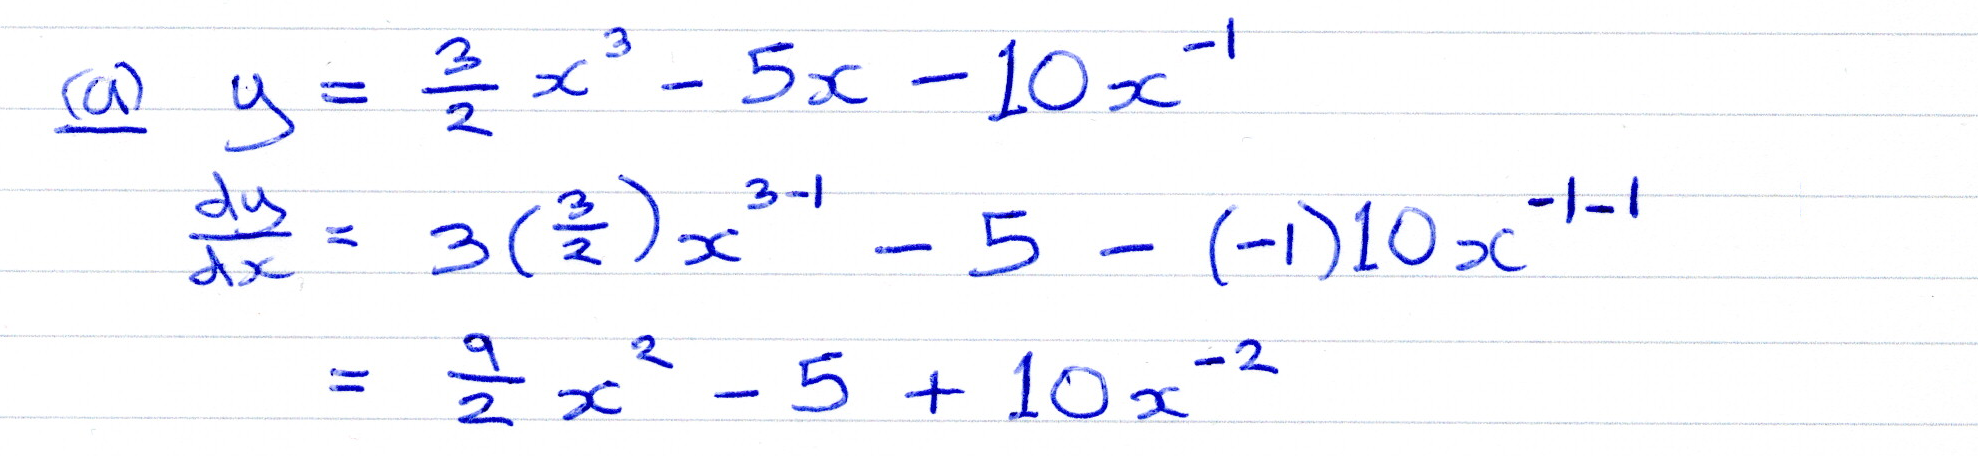 (a) y = 3/2 x³ - 5x - 10x⁻¹
dy/dx = 3(3/2)x³⁻¹ - 5 - (-1)10x⁻¹⁻¹
= 9/2 x² - 5 + 10x⁻²